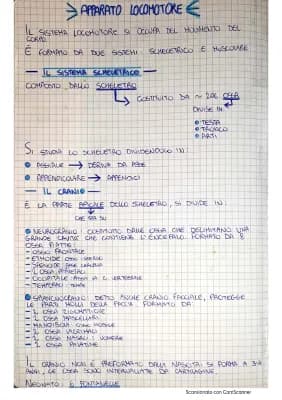 APPARATO LOCOMOTORE
IL SISTEMA LOCOMOTORE SI OCCUPA DEL MOVIMENTO DEL
CORPO
È FORMATO DA DUE SISTEMI: SCHELETRICO E MUSCOLARE
IL SISTEMA SCHELETRICO
COMPOSTO DALLO SCHELETRO
COSTITUITO DA ~ 206 OSSA
DIVISE IN
TESTA
TRONCO
ARTI
SI STUDIA LO SCHELETRO DIVIDENDOLO IN:
ASSIALE → DERIVA DA ASSE
APPENDICOLARE → APPENDICI
IL CRANIO
È LA PARTE APICALE DELLO SCHELETRO, SI DIVIDE IN:
CHE STA SU
NEUROCRANIO: COSTITUITO DALLE OSSA CHE DELIMITANO UNA
GRANDE CAVITÀ CHE CONTIENE L'ENCEFALO. FORMATO DA 8
OSSA PIATTE:
- OSSO FRONTALE
- ETMOIDE
- SFENOIDE
- 2 OSSA PARIETALI
- OCCIPITALE
- TEMPORALI
SPLANCNOCRANIO: DETTO ANCHE CRANIO FACCIALE, PROTEGGE
LE PARTI MOLLI DELLA FACCIA. FORMATO DA:
- 2 OSSA ZIGOMATICHE
- 2 OSSA MASCELLARI
- MANDIBOLA: OSSO MOBILE
- 2 OSSA LACRIMALI
- 2 OSSA NASALI 1 VOMERE
- 2 OSSA PALATINE
IL CRANIO NON È PREFORMATO DALLA NASCITA: SI FORMA A 3-4
ANNI, LE OSSA SONO INTERVALLATE DA CARTILAGINE.
NEONATO: 6 FONTANELLE
Scansionato con CamScanner